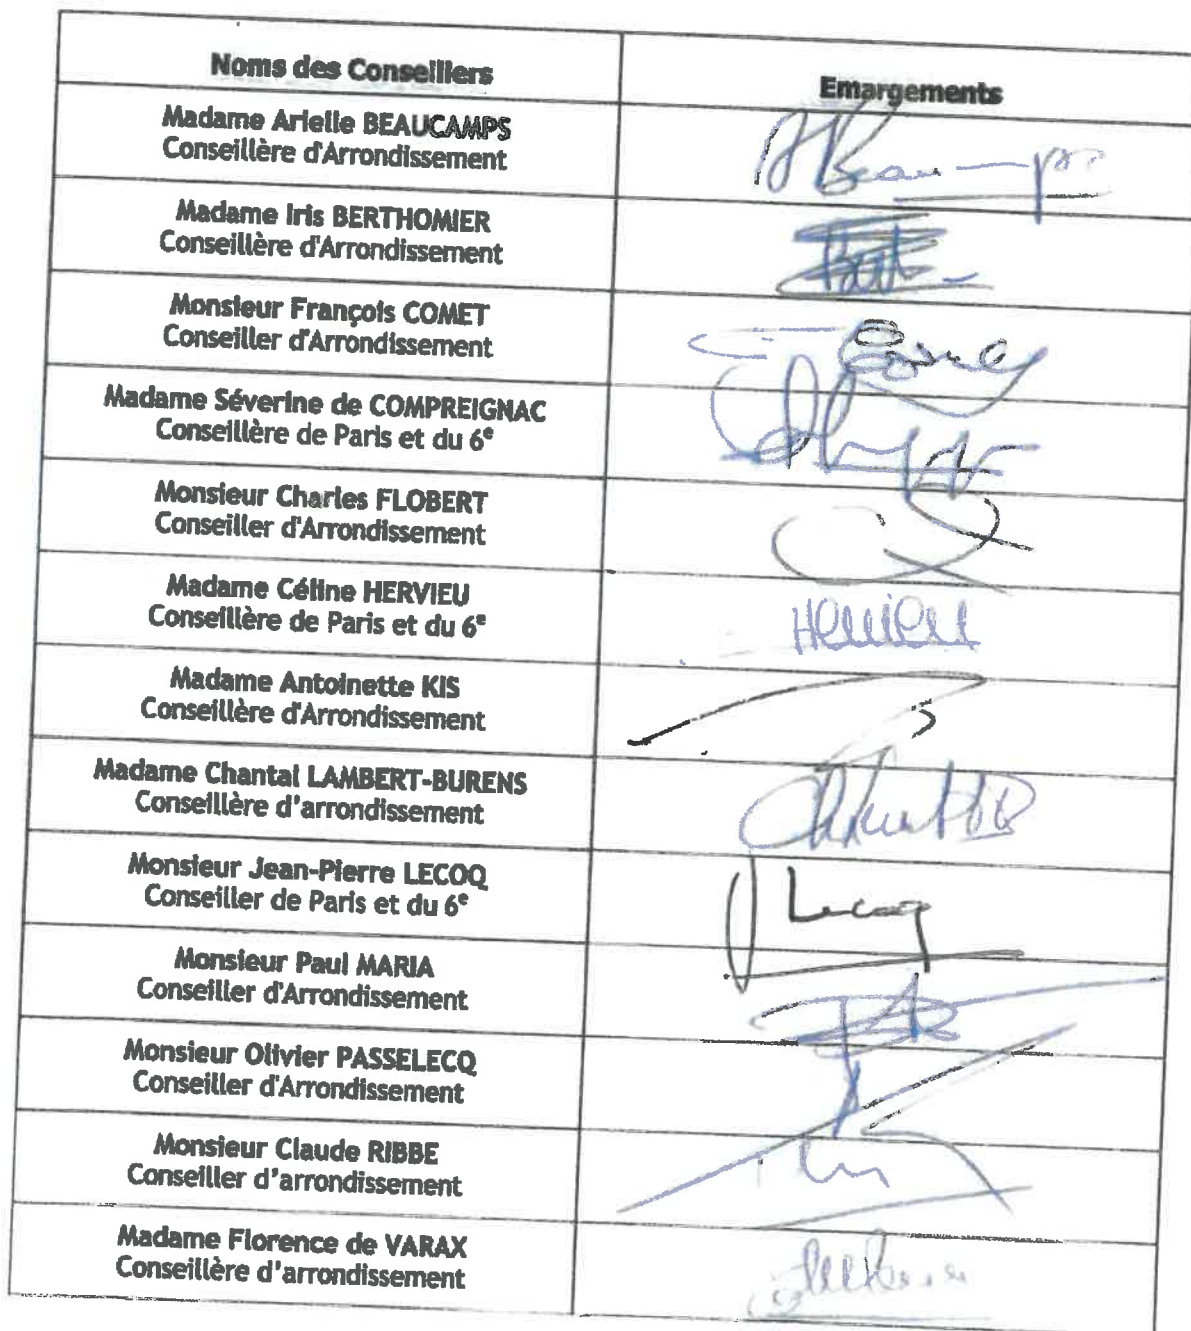 Noms des Conseillers
Emargements
Madame Arielle BEAUCAMPS
Conseillère d'Arrondissement
Madame Iris BERTHOMIER
Conseillère d'Arrondissement
Monsieur François COMET
Conseiller d'Arrondissement
Madame Séverine de COMPREIGNAC
Conseillère de Paris et du 6e
Monsieur Charles FLOBERT
Conseiller d'Arrondissement
Madame Céline HERVIEU
Conseillère de Paris et du 6e
Hervieu
Madame Antoinette KIS
Conseillère d'Arrondissement
Madame Chantal LAMBERT-BURENS
Conseillère d'arrondissement
Monsieur Jean-Pierre LECOQ
Conseiller de Paris et du 6e
J Lecoq
Monsieur Paul MARIA
Conseiller d'Arrondissement
Monsieur Olivier PASSELECQ
Conseiller d'Arrondissement
Monsieur Claude RIBBE
Conseiller d'arrondissement
Madame Florence de VARAX
Conseillère d'arrondissement